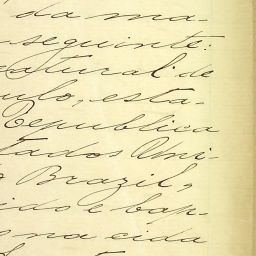 da ma-
seguinte:
natural de
ulo, esta-
Republica
tados Uni-
Brazil,
ido e bap-
na cida